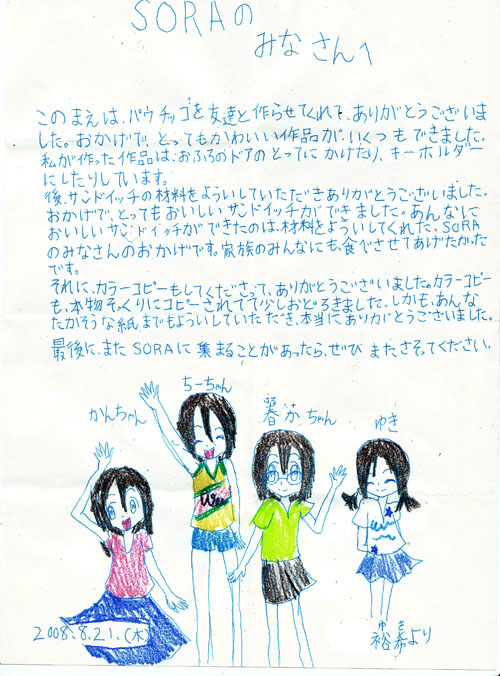 SORAの
みなさんへ
このまえは、パウチッコを友達と作らせてくれて、ありがとうございま
した。おかげで、とってもかわいい作品が、いくつもできました。
私が作った作品は、おふろのドアのとってにかけたり、キーホルダー
にしたりしています。
後、サンドイッチの材料をよういしていただきありがとうございました。
おかげで、とってもおいしいサンドイッチができました。あんなに
おいしいサンドイッチができたのは、材料をよういしてくれた、SORA
のみなさんのおかげです。家族のみんなにも、食べさせてあげたかった
です。
それに、カラーコピーもしてくださって、ありがとうございました。カラーコピー
も、本物そっくりにコピーされてて少しおどろきました。しかも、あんな
たかそうな紙までもよういしていただき、本当に、ありがとうございました。
最後に、また SORAに集まることがあったら、ぜひまた、さそってください。
ちーちゃん
かんちゃん
ちゃん
ゆき
2008.8.21.(木)
ゆき
裕希より